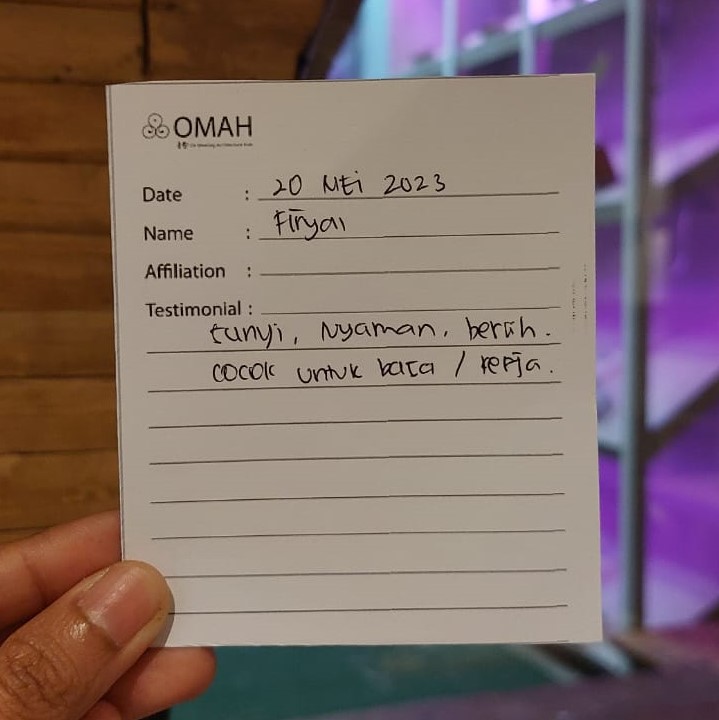 OMAH
Date : 20 Mei 2023
Name : Firyal
Affiliation :
Testimonial :
sunyi, Nyaman, bersih.
cocok untuk baca / kerja.